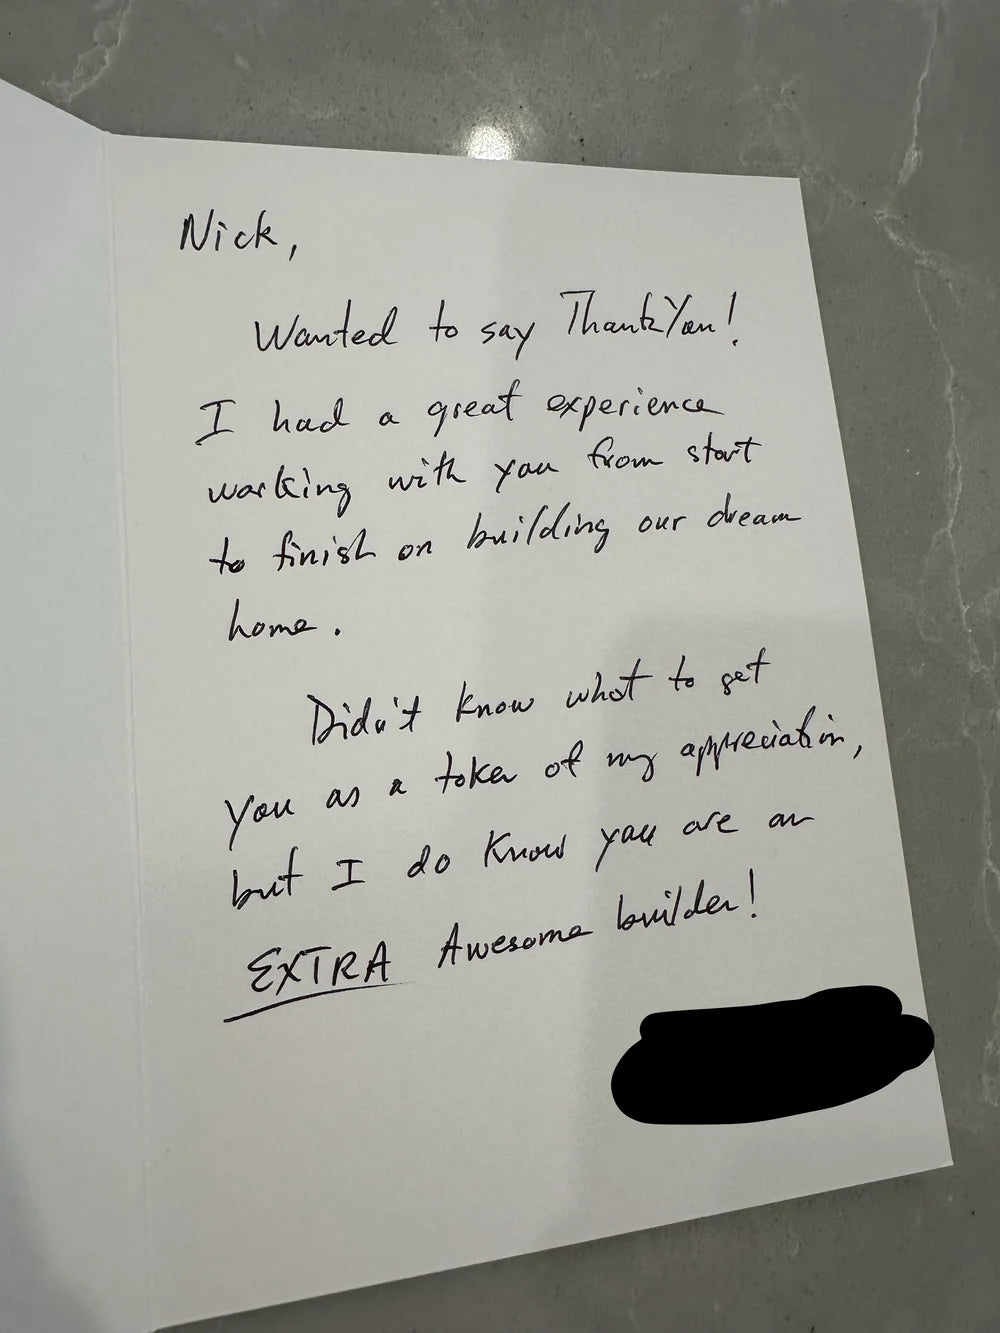 Nick,
Wanted to say Thank You!
I had a great experience
working with you from start
to finish on building our dream
home.
Didn't know what to get
you as a token of my appreciation,
but I do know you are an
EXTRA Awesome builder!